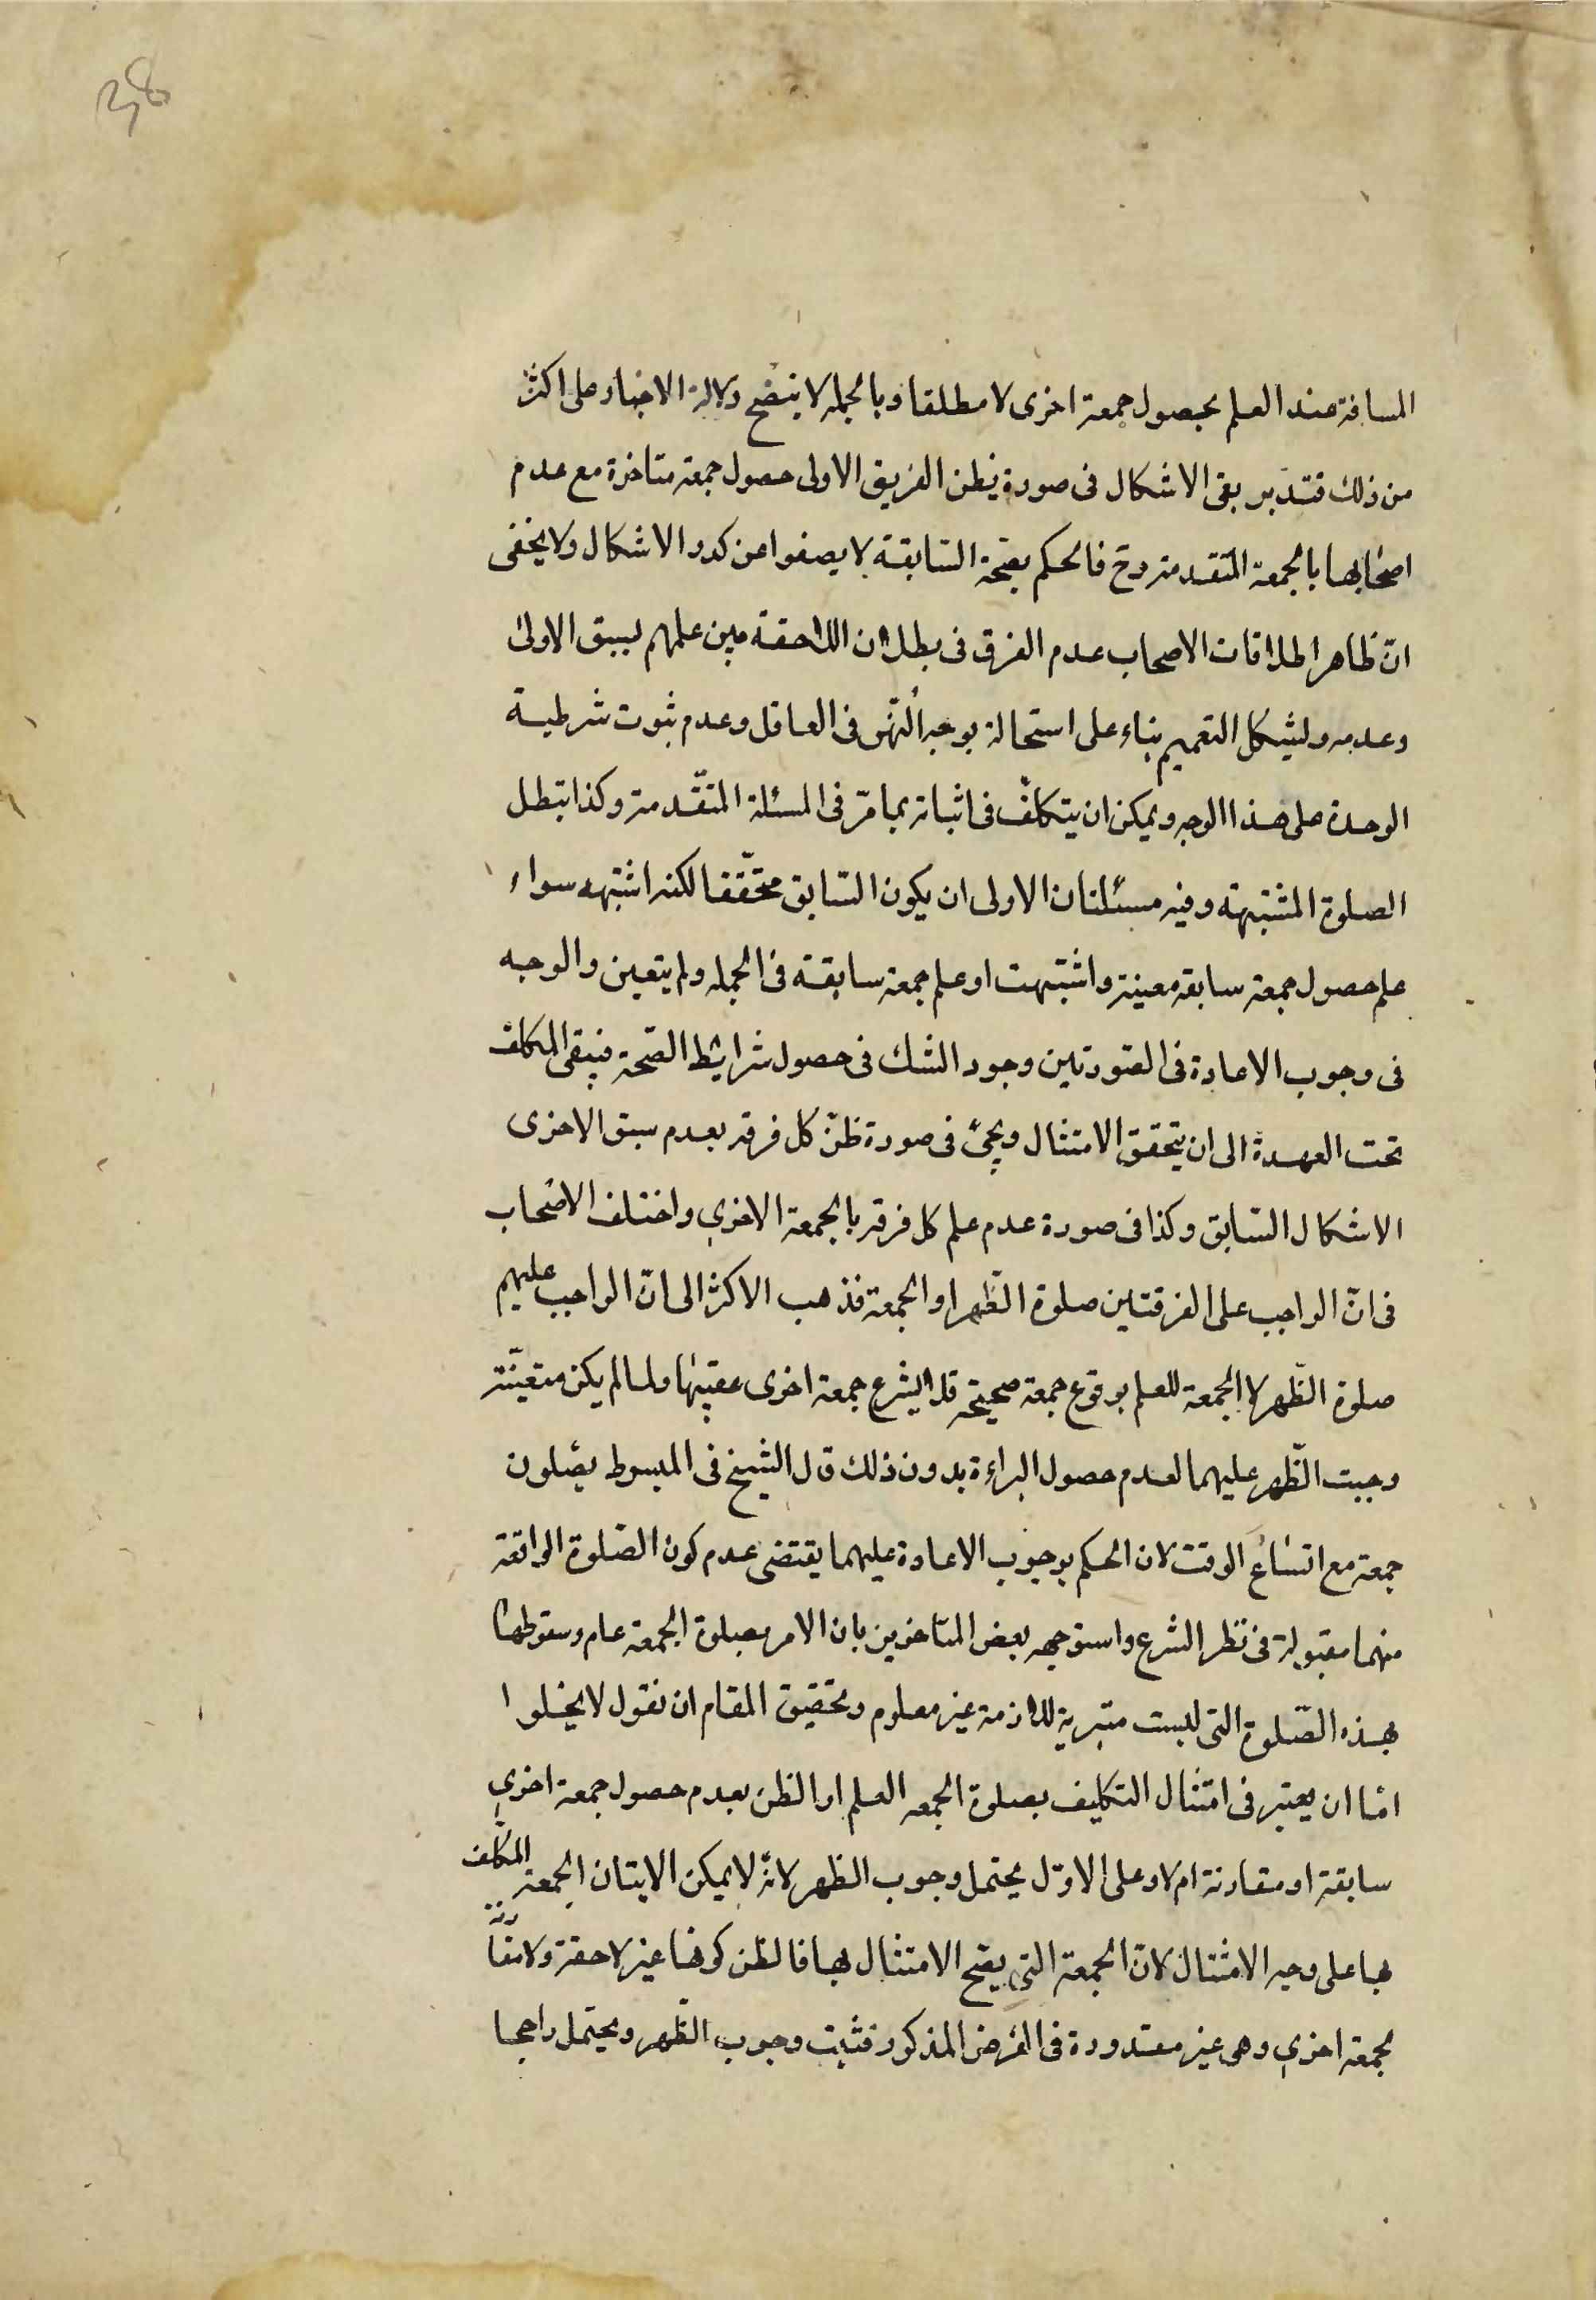 المسافة عند العلم بحصول جمعة اخرى لا مطلقا وبالجمله لا يتضح دلالة الاخبار على اكثر
من ذلك فتدبر بقى الاشكال فى صورة يظن الفريق الاولى حصول جمعة متاخرة مع عدم
اصحابها بالجمعة المتقدمة وح فالحكم بصحة السّابقة لا يصفوا عن كدر الاشكال ولا يخفى
انّ ظاهر اطلاقات الاصحاب عدم الفرق فى بطلان اللاحقة بين علمهم بسبق الاولى
وعدمه وليشكل التعميم بناء على استحالة توجه النّهى فى الغافل وعدم ثبوت شرطية
الوحدة على هذا الوجه ويمكن ان يتكلّف فى اثباته بما مرّ فى المسئلة المتقّدمة وكذا تبطل
الصلوة المشتبهة وفيه مسئلتان الاولى ان يكون السّابق محقّقا لكنه اشتبه سواء
علم حصول جمعة سابقة معينة واشتبهت او علم جمعة سابقة فى الجمله ولم يتعين والوجه
فى وجوب الاعادة فى الصّورتين وجود الشك فى حصول شرايط الصّحة فيبقى المكلف
تحت العهدة الى ان يتحقق الامتثال ويجئ فى صورة ظنّ كل فرقة بعدم سبق الاخرى
الاشكال السّابق وكذا فى صورة عدم علم كل فرقة بالجمعة الاخرى واختلف الاصحاب
فى انّ الواجب على الفرقتين صلوة الظّهر او الجمعة فذهب الاكثر الى انّ الواجب عليهم
صلوة الظّهر لا الجمعة للعلم بوقوع جمعة صحيحة فلا يشرع جمعة اخرى عقيبها ولما لم يكن متعينّة
وجبت الظّهر عليهما لعدم حصول البراءة بدون ذلك قال الشيخ فى المبسوط يصّلون
جمعة مع اتساع الوقت لان الحكم بوجوب الاعادة عليهما يقتضى عدم كون الصّلوة الواقعة
منهما مقبولة فى نظر الشرع واستوجهه بعض المتاخرين بان الامر بصلوة الجمعة عام وسقوطها
بهذه الصّلوة التى ليست متبرية للاذمة غير معلوم وتحقيق المقام ان نقول لا يخلوا
امّا ان يعتبر فى امتثال التكليف بصلوة الجمعه العلم او الظن بعدم حصول جمعة اخرى
سابقة او مقارنة ام لا وعلى الاوّل يحتمل وجوب الظهر لانّه لا يمكن الاتيان الجمعة المكلف
بها على وجه الامتثال لانّ الجمعة التى يصّح الامتثال بها فالظن كونها غير لاحقة ولا مقارنة
لجمعة اخرى وهى غير مقدورة فى الفرض المذكور فثبت وجوب الظّهر ويحتمل راجحا